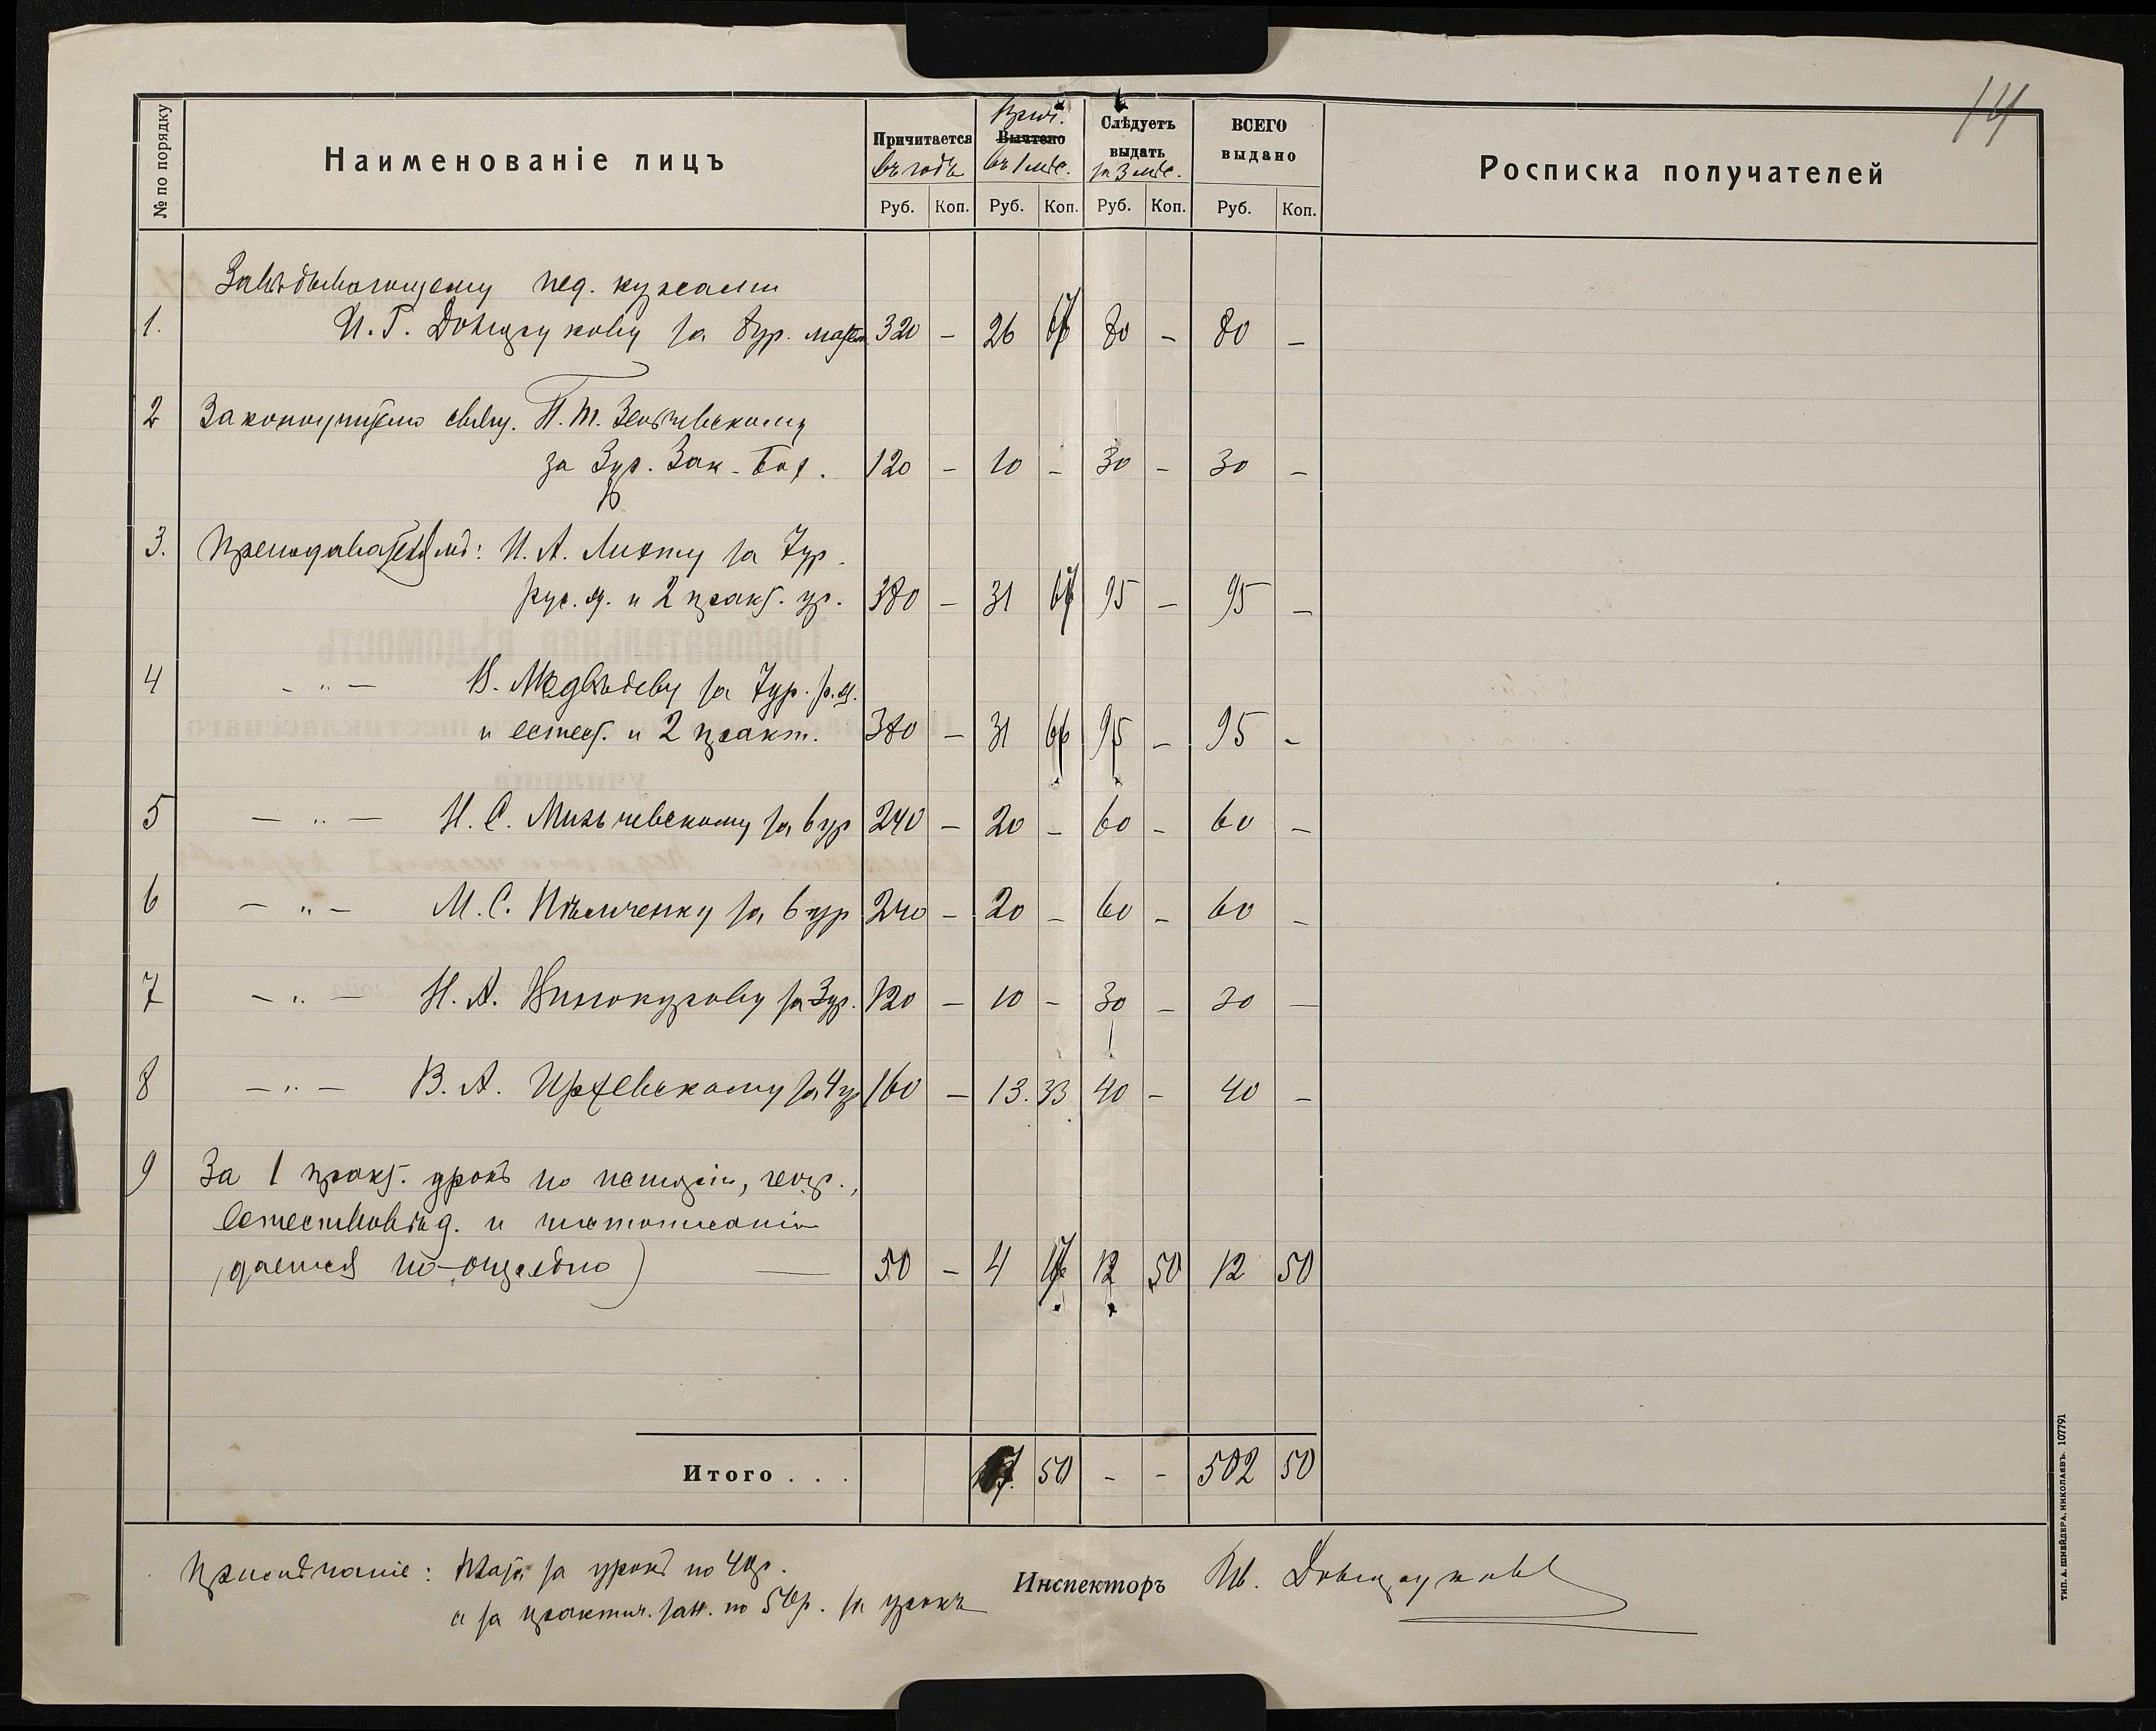 14
№ по порядку
Наименованіе лицъ
Причитается
въ годъ
Прич.
Вычтено
въ 1 мѣс.
Слѣдуетъ
выдать
за 3 мѣс.
ВСЕГО
выдано
Росписка получателей
Руб. Коп. Руб. Коп. Руб. Коп. Руб. Коп.
Завѣдывающему пед. курсами
1. И. Г. за 8 ур. матем. 320 – 26 67 80 – 80 –
2 Законоучителю свящ. П. Т.
за 3 ур. Зак. Бож. 120 – 10 – 30 – 30 –
3. Преподавателямъ: И. А. Листу за 7 ур.
рус. яз. и 2 практ. ур. 380 – 31 67 95 – 95 –
4 – " – Медвѣдеву за 7 ур. р. яз.
и естест. и 2 практ. 380 – 31 66 95 – 95 –
5 – " – Н. С. Мизьчевскому за 6 ур 240 – 20 – 60 – 60 –
6 – " – М. С. за 6 ур 240 – 20 – 60 – 60 –
7 – " – Н. А. Винокурову за 3 ур. 120 – 10 – 30 – 30 –
8 – " – В. А. Иржевскому за 4 ур 160 – 13. 33 40 – 40 –
9 За 1 практ. урокъ по исторіи, геогр.,
Естествовѣд. и чистописанію
(дается по-очередно) 50 – 4 17 12 50 12 50
Итого . . . 50 – – 502 50
Примѣчаніе: Плата за урокъ по 40 р.
а за практич. зан. по 50 р. за урокъ
Инспекторъ Ив.
ТИП. А. ШНЕЙДЕРА. НИКОЛАЕВЪ. 107791